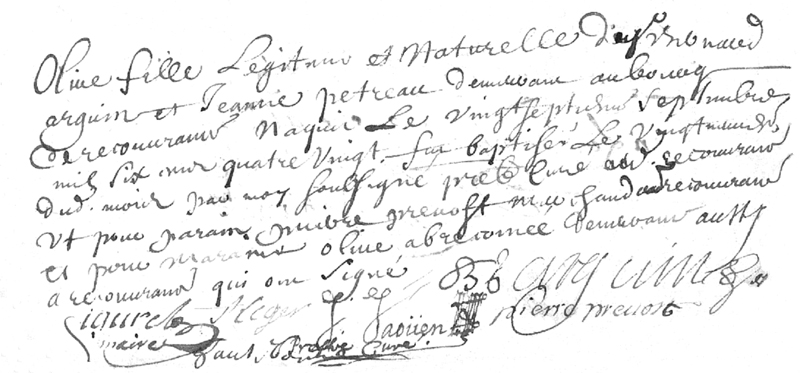 Olive fille Legitime et Naturelle d'esp. Bernard
arquin et Jeanne petreau demeurant au bourcq
de recouvrance Naquit Le Vingt septiesme septembre
mil six cens quatre Vingt fut baptisée Le Vingtneuf
dud. moiis par moy soubsigné prestre Curé de recouvrance
Ut pour parain pierre prevost marchand a recouvrance
et pour maraine olive demeurant aussy
a recouvrance qui ont signé
B arquin
pierre prevost
maire Jaoüen
Curé